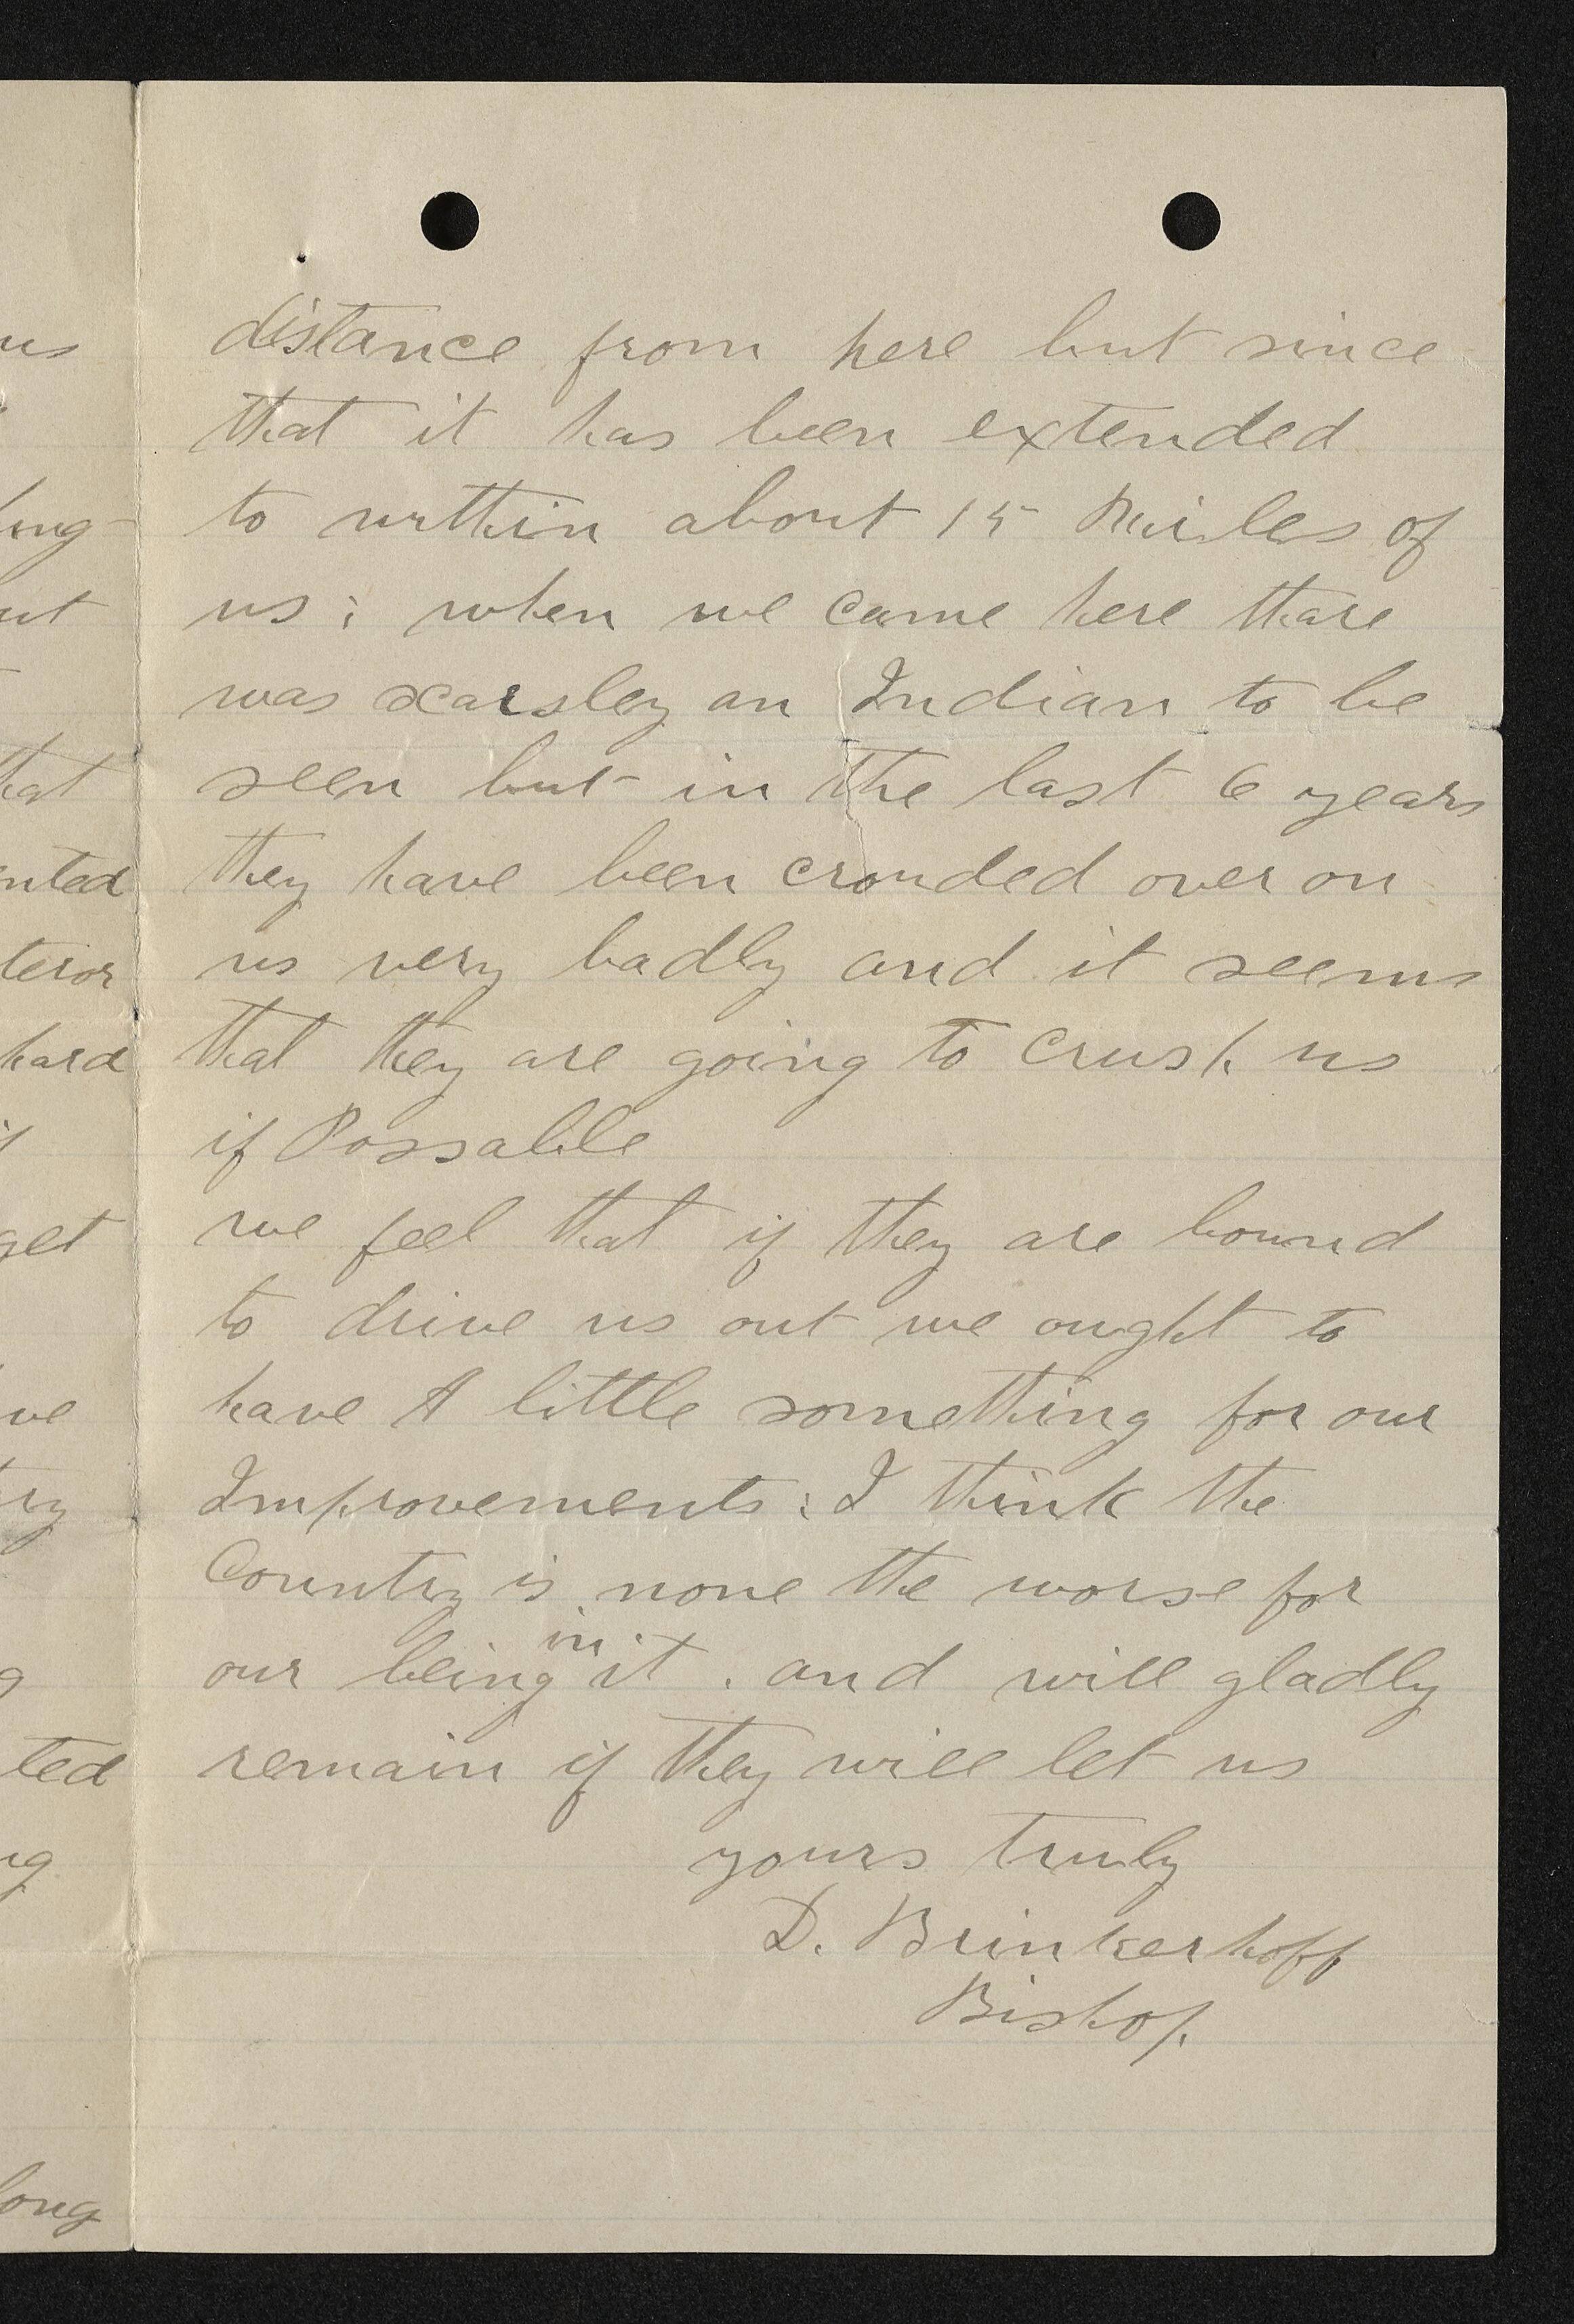 distance from here but since
that it has been extended
to within about 15 Miles of
us ; when we came here thare
was scarsley an Indian to be
seen but in the last 6 years
they have been crouded over on
us very badly and it seems
that they are going to crush us
if Possable
we feel that if they are bound
to drive us out we ought to
have A little something for our
Improvements : I think the
Country is none the worse for
our being in it . and will gladly
remain if they will let us
yours truly
D. Brinkerhoff
Bishop.
us
ut
hat
nted
teror
hard
get
ve
try
ted
long